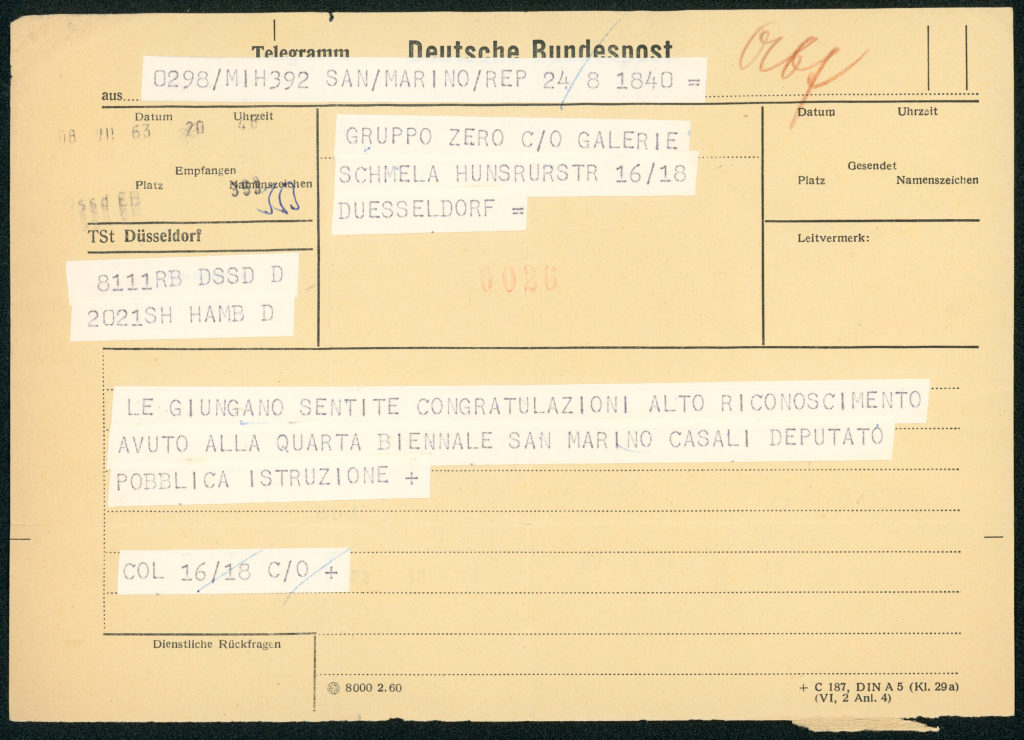 Telegramm Deutsche Bundespost
Abf
0298/MIH392 SAN/MARINO/REP 24/8 1840 =
aus
Datum Uhrzeit
08 III 63 20
Empfangen
Platz Namenszeichen
TSt Düsseldorf
8111RB DSSD D
2021SH HAMB D
GRUPPO ZERO C/O GALERIE
SCHMELA HUNSRURSTR 16/18
DUESSELDORF =
0026
Datum Uhrzeit
Gesendet
Platz Namenszeichen
Leitvermerk:
LE GIUNGANO SENTITE CONGRATULAZIONI ALTO RICONOSCIMENTO
AVUTO ALLA QUARTA BIENNALE SAN MARINO CASALI DEPUTATO
POBBLICA ISTRUZIONE +
COL 16/18 C/O +
Dienstliche Rückfragen
8000 2.60
+ C 187, DIN A 5 (Kl. 29a)
(VI, 2 Anl. 4)